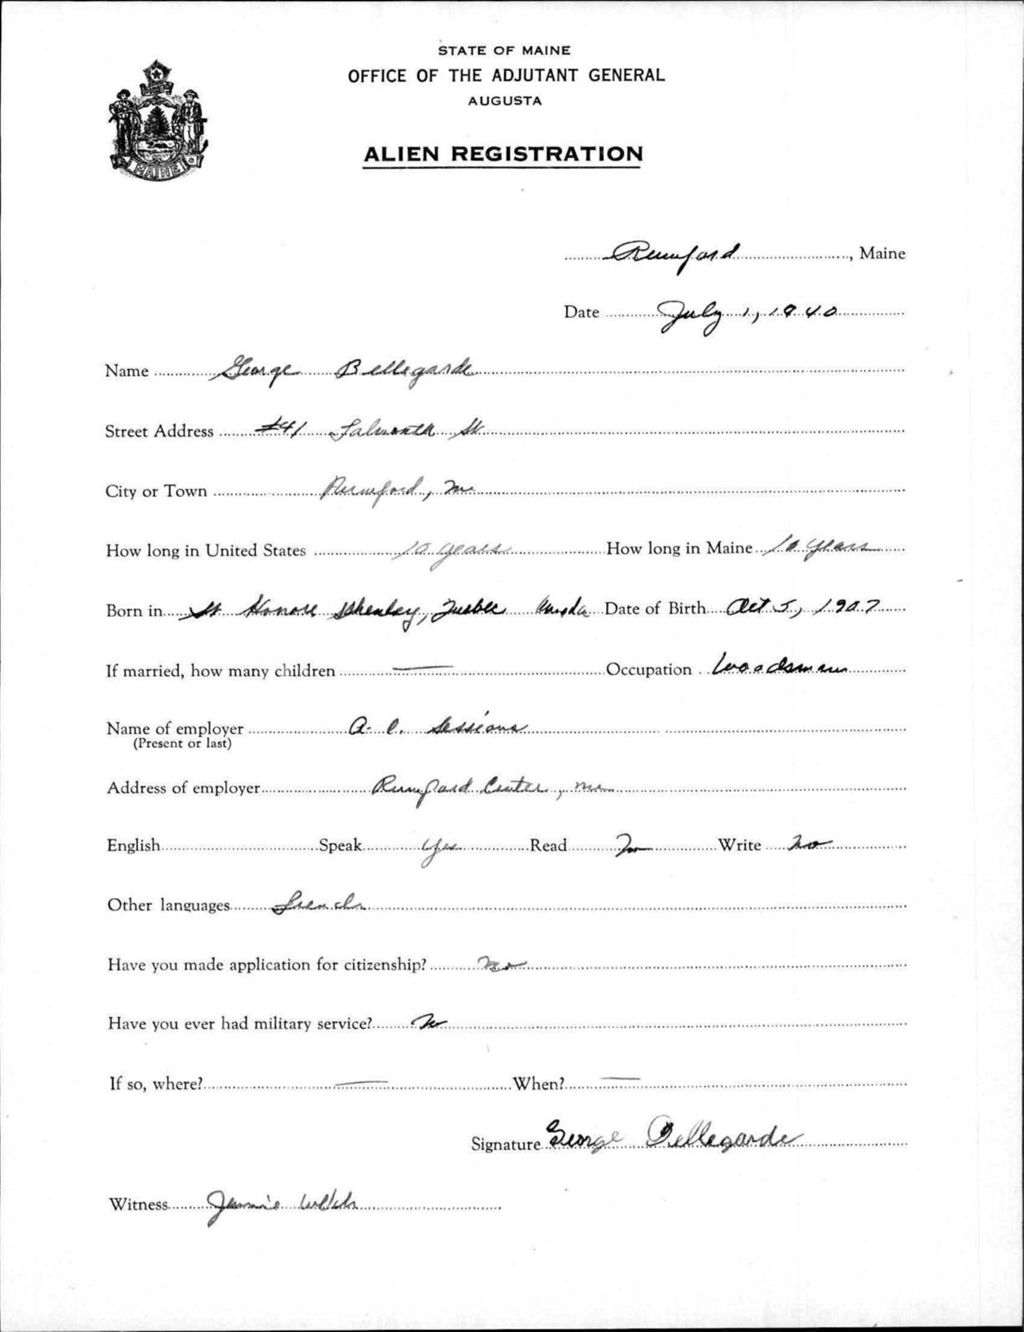 STATE OF MAINE
OFFICE OF THE ADJUTANT GENERAL
AUGUSTA
MAINE
ALIEN REGISTRATION
Rumford, Maine
Date July 1, 1940
Name George Bellegarde
Street Address #41 St
City or Town Rumford, Me
How long in United States 10 years How long in Maine 10 years
Born in St Honore Shenley, Quebec Canada Date of Birth Oct 5, 1907
If married, how many children — Occupation Woodsman
Name of employer A. C. Sessions
(Present or last)
Address of employer Rumford Center, Me
English Speak Yes Read No Write No
Other languages French
Have you made application for citizenship? No
Have you ever had military service? No
If so, where? — When? —
Signature George Bellegarde
Witness Jennie